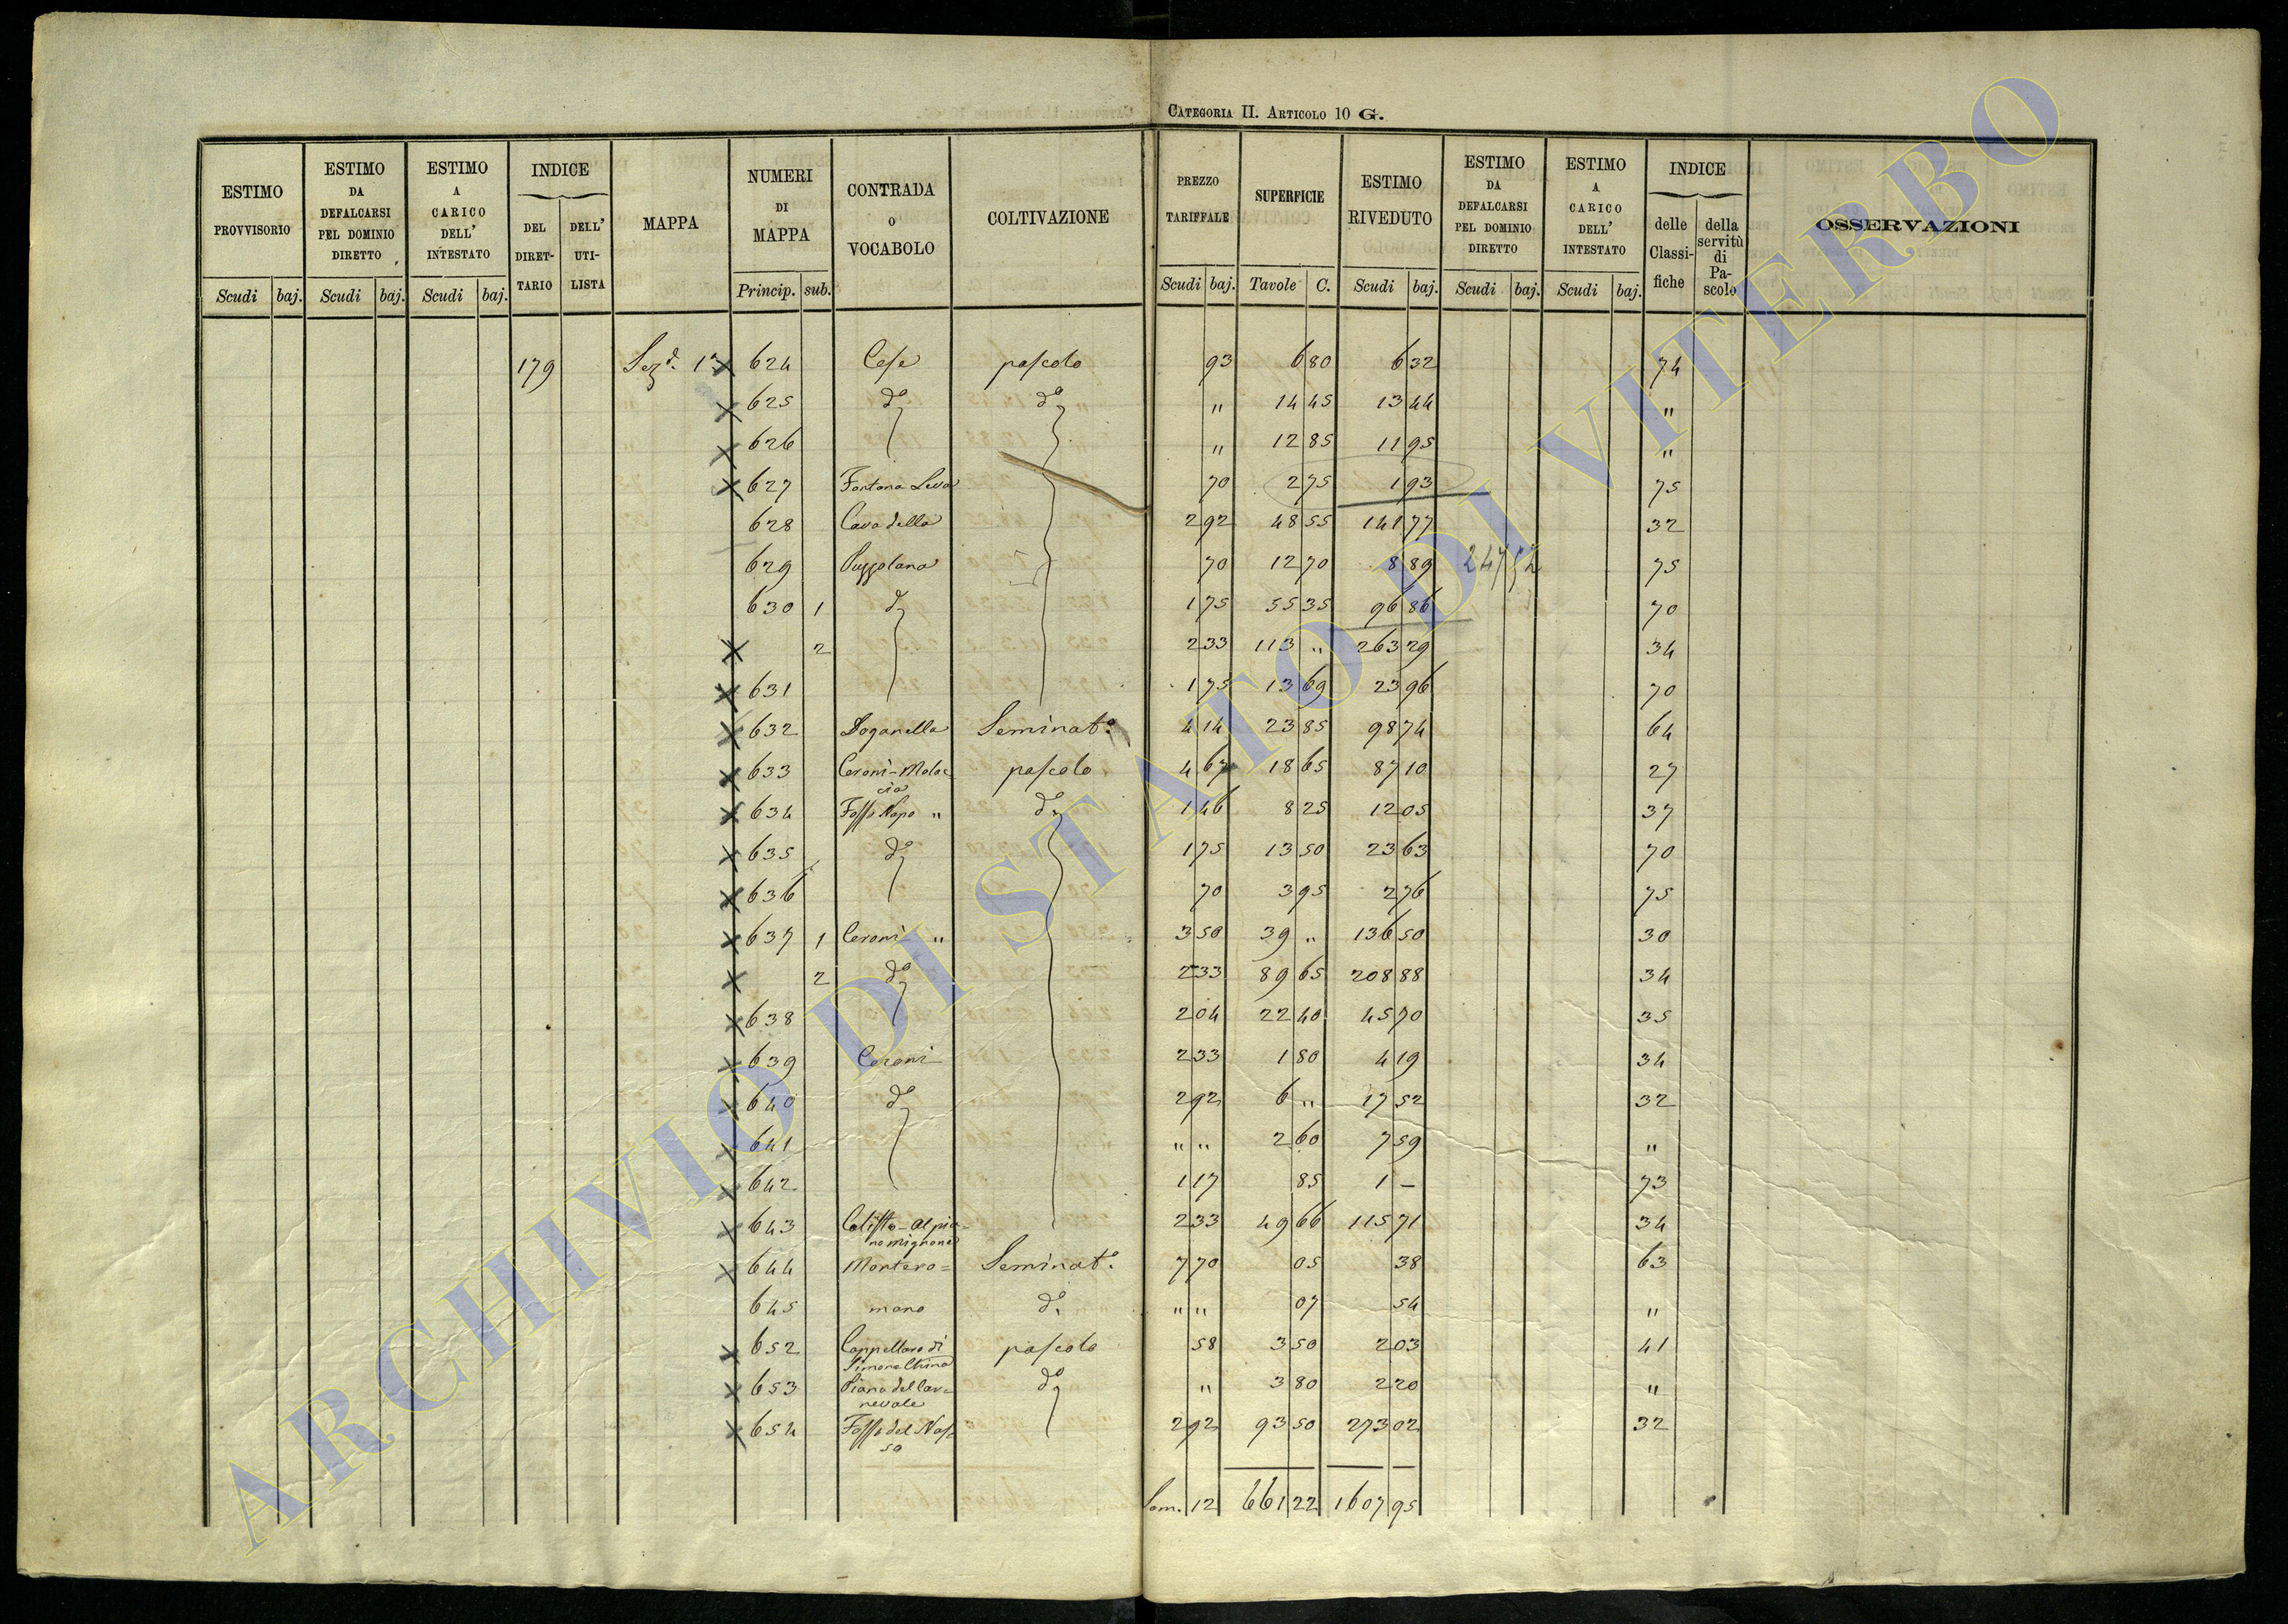 CATEGORIA II. ARTICOLO 10 G.
ESTIMO PROVVISORIO Scudi baj. | ESTIMO DA DEFALCARSI PEL DOMINIO DIRETTO Scudi baj. | ESTIMO A CARICO DELL' INTESTATO Scudi baj. | INDICE DEL DIRET-TARIO | DELL' UTI-LISTA | MAPPA | NUMERI DI MAPPA Princip. sub. | CONTRADA O VOCABOLO | COLTIVAZIONE | PREZZO TARIFFALE Scudi baj. | SUPERFICIE Tavole C. | ESTIMO RIVEDUTO Scudi baj. | ESTIMO DA DEFALCARSI PEL DOMINIO DIRETTO Scudi baj. | ESTIMO A CARICO DELL' INTESTATO Scudi baj. | INDICE delle Classi-fiche | della servitù di Pa-scolo | OSSERVAZIONI
179 Sez.e 1a x 624 Cese pascolo 93 6 80 6 32 74
x 625 do do " 14 45 13 44 "
x 626 " 12 85 11 95 "
x 627 Fontana Leva 70 2 75 1 93 75
628 Cava della 2 92 48 55 141 77 32
629 Puzzolana 70 12 70 8 89 247 52 75
630 1 do 1 75 55 35 96 86 70
x 2 2 33 113 " 263 29 34
x 631 1 75 13 69 23 96 70
x 632 Doganella Seminato. 4 14 23 85 98 74 64
x 633 Ceroni-Molac= pascolo 4 67 18 65 87 10 27
cia
x 634 Fosso Napo " do 1 46 8 25 12 05 37
x 635 do 1 75 13 50 23 63 70
x 636 70 3 95 2 76 75
x 637 1 Ceroni " 3 50 39 " 136 50 30
x 2 do 2 33 89 65 208 88 34
x 638 2 04 22 40 45 70 35
x 639 Ceroni 2 33 1 80 4 19 34
x 640 do 2 92 6 " 17 52 32
x 641 " " 2 60 7 59 "
x 642 1 17 85 1 — 73
x 643 Calisto-Alpia= 2 33 49 66 115 71 34
no Mignone
x 644 Montero= Seminato. 7 70 05 38 63
645 mano do. " " 07 54 "
x 652 Cappellaro di pascolo 58 3 50 2 03 41
Simone China
x 653 Piana del Car= do " 3 80 2 20 "
nevale
x 654 Fosso del Nas= 2 92 93 50 273 02 32
so
Som. 12 661 22 1607 95
ARCHIVIO DI STATO DI VITERBO